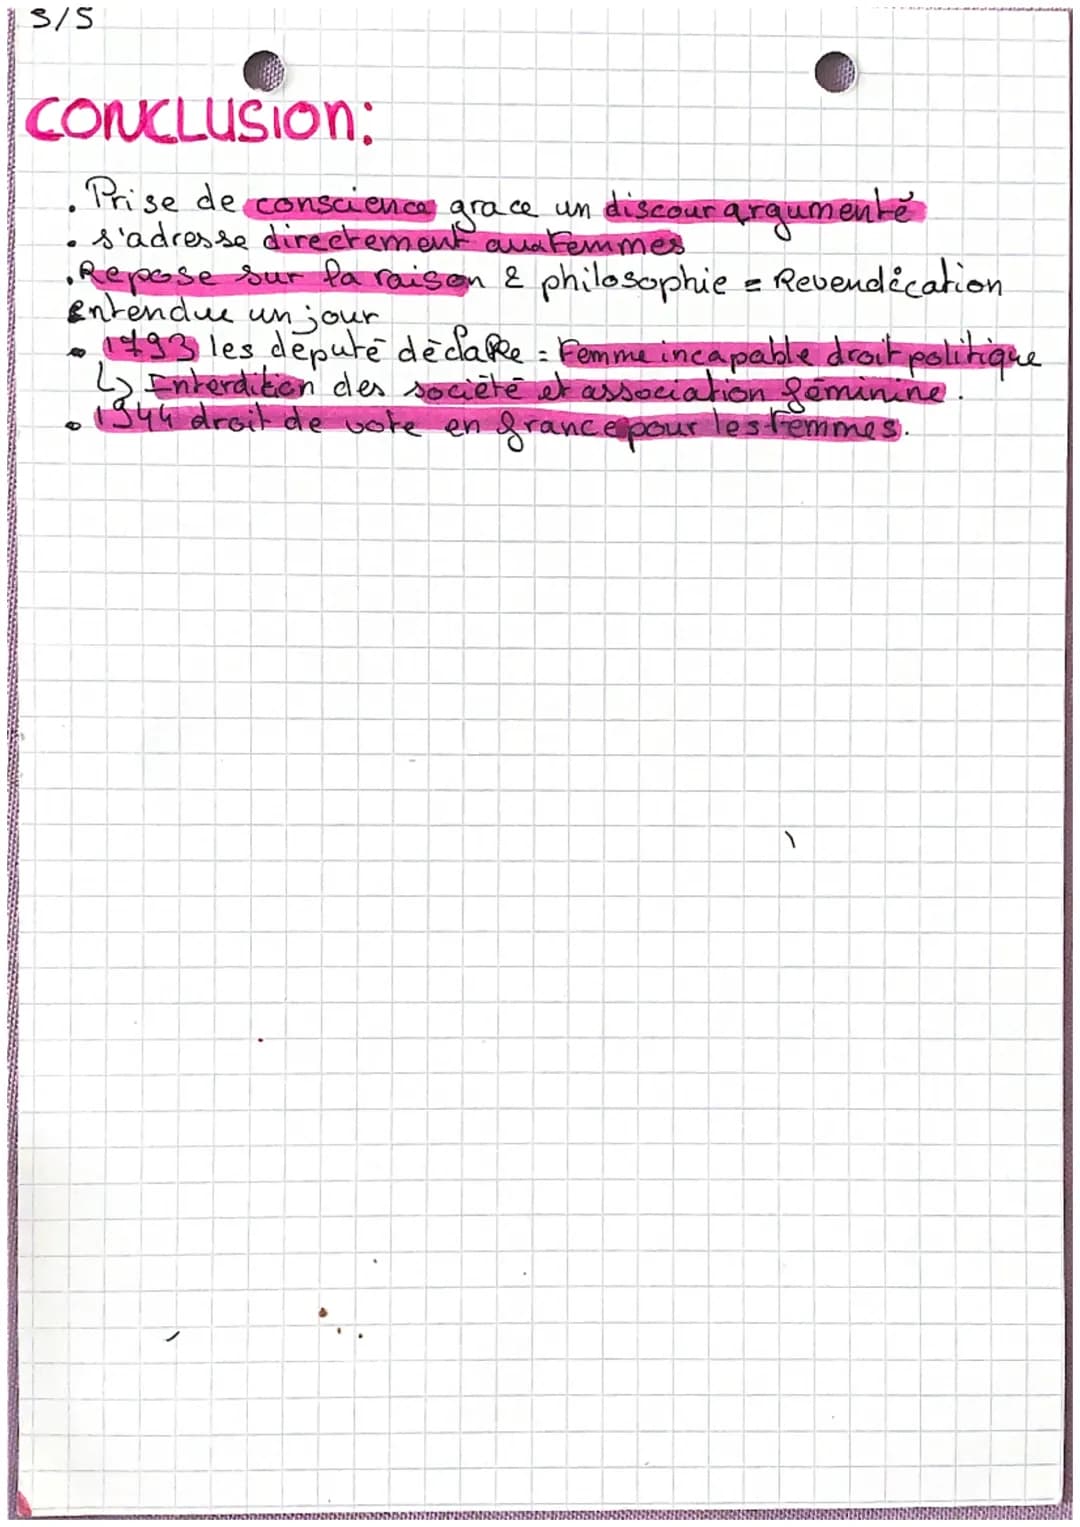 3/5
CONCLUSION:
. Prise de conscience grace un discour argumenté
. s'adresse directement aux femmes
. Repose sur la raison & philosophie = Revendication
entendue un jour
• 1793 les députe déclare = Femme incapable droit politique
↳ Interdition des société et association féminine.
• 1944 droit de vote en france pour les femmes.